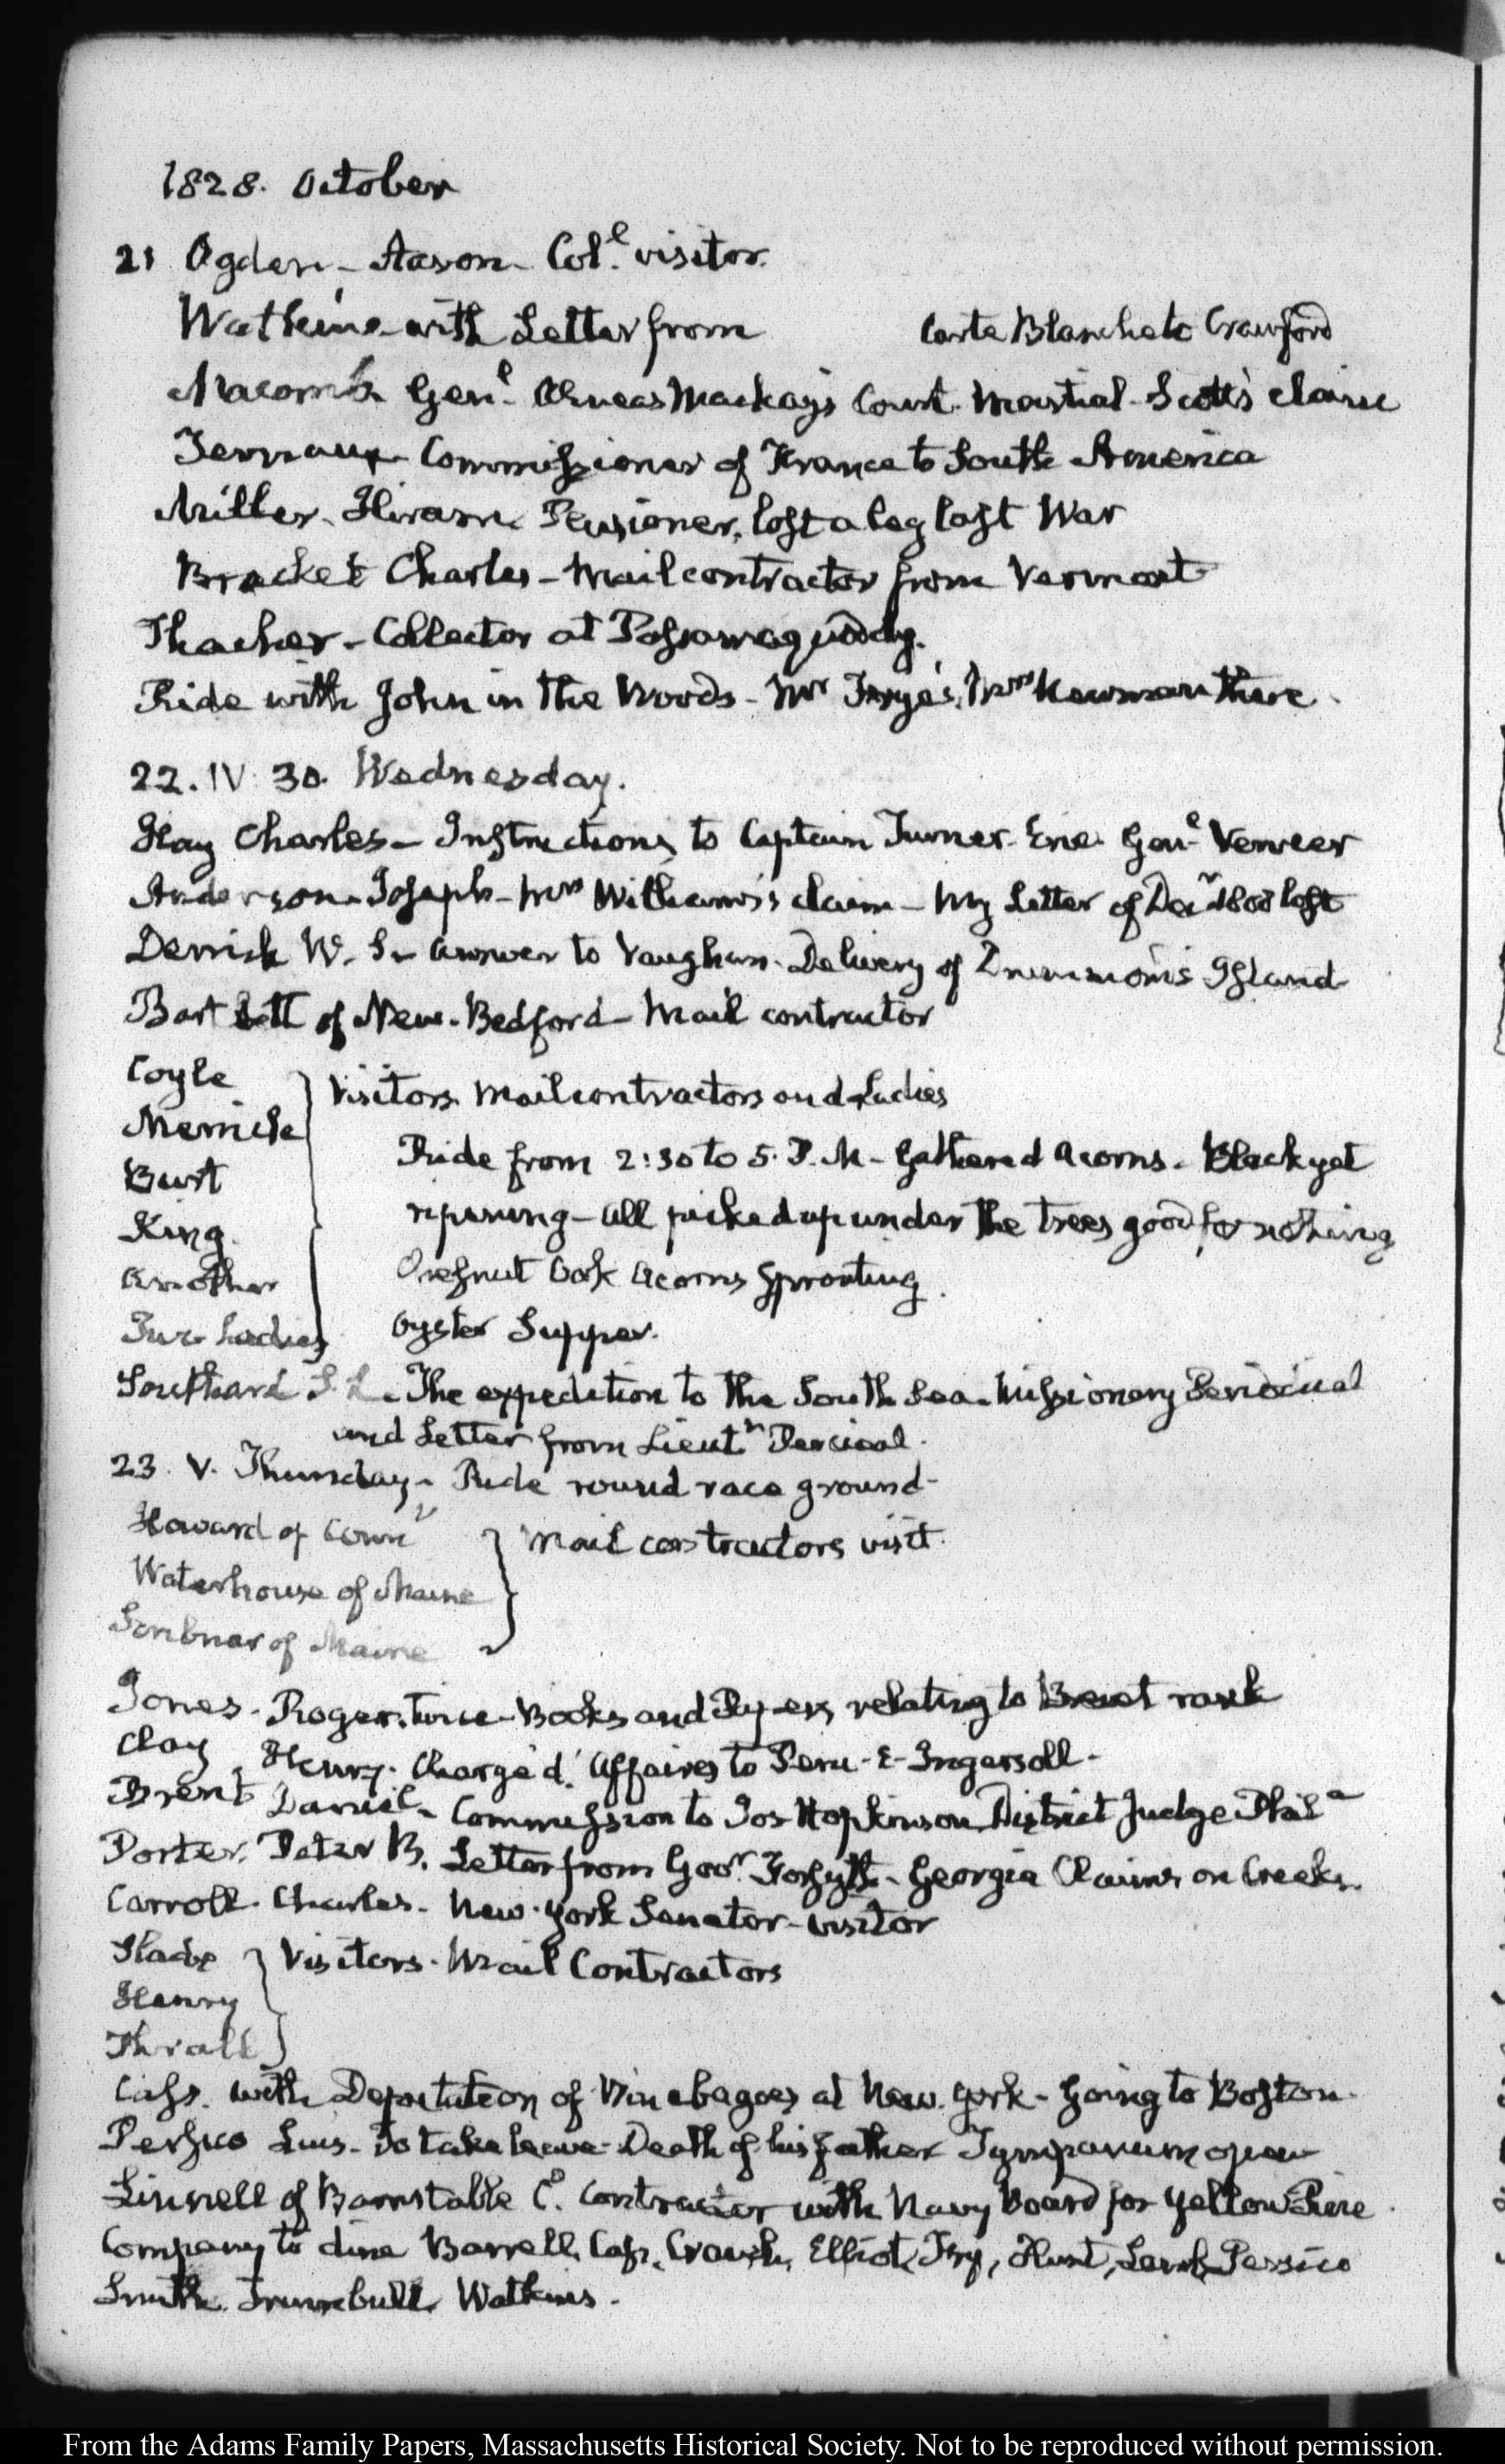 1828. October
21 Ogden - Aaron - Col.l visitor.
Watkins - with Letter from Carte Blanche to Crawford
Macomb. Gen.l Æneas Mackay's Court Martial - Scott's claim
Ternaux Commissioner of France to South America
Miller. Hiram Pensioner, lost a leg last War
Bracket Charles - Mail contractor from Vermont
Thacher - Collector at Passamaquoddy.
Ride with John in the Woods - Mr Frye's, Mrs Newman there.
22. IV. 30. Wednesday.
Hay Charles - Instructions to Captain Turner. Erie. Gen.l Verveer
Anderson. Joseph - Mrs Williams's claim - My Letter of 1808 lost
Derrick W. S. answer to Vaughan. Delivery of Drummond's Island
Bartlett of New-Bedford - Mail contractor
Coyle } Visitors. Mail contractors and Ladies
Merrick
Ride from 2:30 to 5. P.M - Gathered Acorns. Black yet
Burt
ripening - all picked up under the trees good for nothing
King.
Another
Chesnut Oak Acorns Sprouting.
Two Ladies
Oyster Supper.
Southard S. L. The expedition to the South Sea. Missionary Periodical
and Letter from Lieut.t Percival.
23. V. Thursday. Ride round race ground -
Howard of Conn.t } Mail contractors visit.
Waterhouse of Maine
Scribner of Maine
Jones. Roger. twice - Books and Papers relating to Brevet rank
Clay, Henry. Chargé d'Affaires to Peru - E - Ingersoll -
Brent Daniel - Commission to Jos Hopkinson District Judge Phil.a
Porter. Peter B. Letter from Gov.r Forsyth - Georgia Claims on Creeks.
Carroll. Charles. New-York Senator - visitor
Slade } Visitors. Mail Contractors
Henry
Thrall
Cass. with Deputation of Winebagoes at New-York - Going to Boston.
Persico Luis - To take leave - Death of his father Tympanum open
Linnell of Barnstable C.o Contractor with Navy Board for Yellow Pine
Company to dine Barrell, Cass, Elliot, Fry, Hunt, Persico
Smith. Trumbull. Watkins.
From the Adams Family Papers, Massachusetts Historical Society. Not to be reproduced without permission.